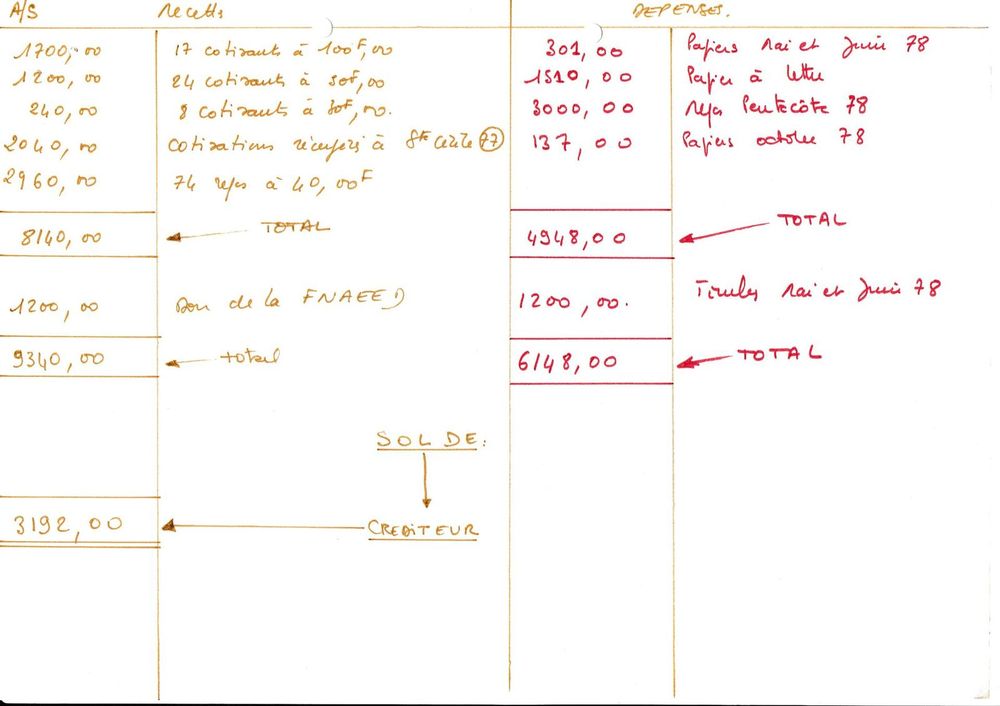 A/S Recettes DEPENSES.
1700,00 17 cotisants à 100F,00 301,00 Papiers Mai et Juin 78
1200,00 24 cotisants à 50F,00 1510,00 Papier à lettre
240,00 8 cotisants à 30F,00. 3000,00 repas Pentecôte 78
2040,00 cotisations à Ste Cécile 77 137,00 Papiers octobre 78
2960,00 74 repas à 40,00F
8140,00 TOTAL 4948,00 TOTAL
1200,00 Don de la FNAEED 1200,00. Timbres Mai et Juin 78
9340,00 total 6148,00 TOTAL
SOLDE:
3192,00 CREDITEUR